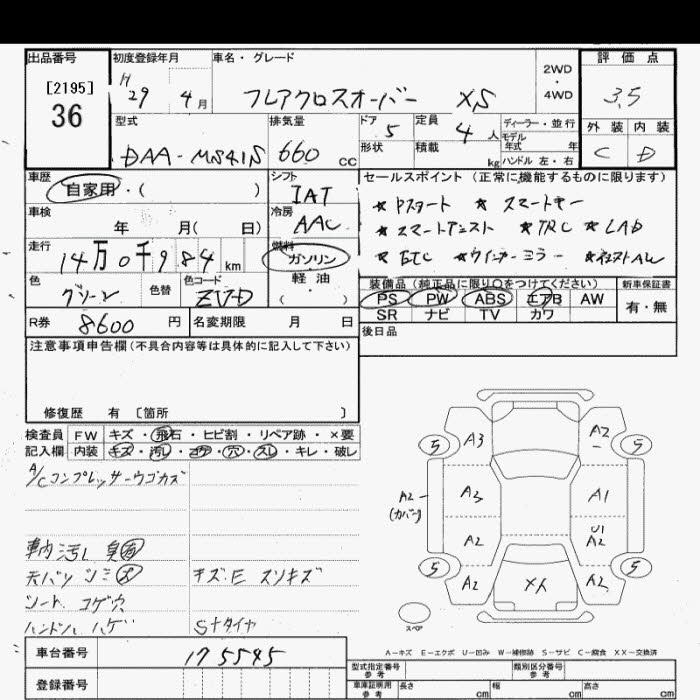 出品番号
[2195]
36
初度登録年月
H 29 4 月
車名・グレード
フレアクロスオーバー XS
2WD
・
4WD
評 価 点
3.5
外 装 内 装
C D
型式
DAA-MS41S
排気量
660 cc
ドア
5
定員
4 人
形状
積載
kg
ディーラー・並行
モデル
年式 年
ハンドル 左・右
車歴
自家用・( )
シフト
IAT
セールスポイント (正常に機能するものに限ります)
★ Pスタート ★ スマートキー
★ スマートアシスト ★ TRC ★ LAD
★ ETC ★ ウインカーミラー
車検
年 月( 日)
冷房
AAC
走行
14万0千984 km
燃料
ガソリン
・
軽 油
・
( )
色
グリーン
色替
色コード
ZVD
装備品 (純正品に限り○をつけてください)
PS PW ABS エアB AW
SR ナビ TV カワ
新車保証書
有・無
R券 8600 円
名変期限 月 日
後日品
注意事項申告欄(不具合内容等は具体的に記入して下さい)
修復歴 有 〔箇所 〕
検査員 FW キズ・飛石・ヒビ割・リペア跡・×要
記入欄 内装 キズ・汚レ・コゲ・穴・スレ・キレ・破レ
A/Cコンプレッサーウゴカズ
車内汚レ 臭有
天バリ シミ大 キズE スリキズ
シート コゲ穴
ハンドル ハゲ Sナタイヤ
5 A3 A2 5
A2 (カバー) A3 A1
A2 U1 A2
5 A2 XX A2 5
スペア
A－キズ E－エクボ U－凹み W－補修跡 S－サビ C－腐食 XX－交換済
車台番号 175545
登録番号
型式指定番号 参 考
類別区分番号 参 考
車庫証明用 参 考 長さ cm 幅 cm 高さ cm